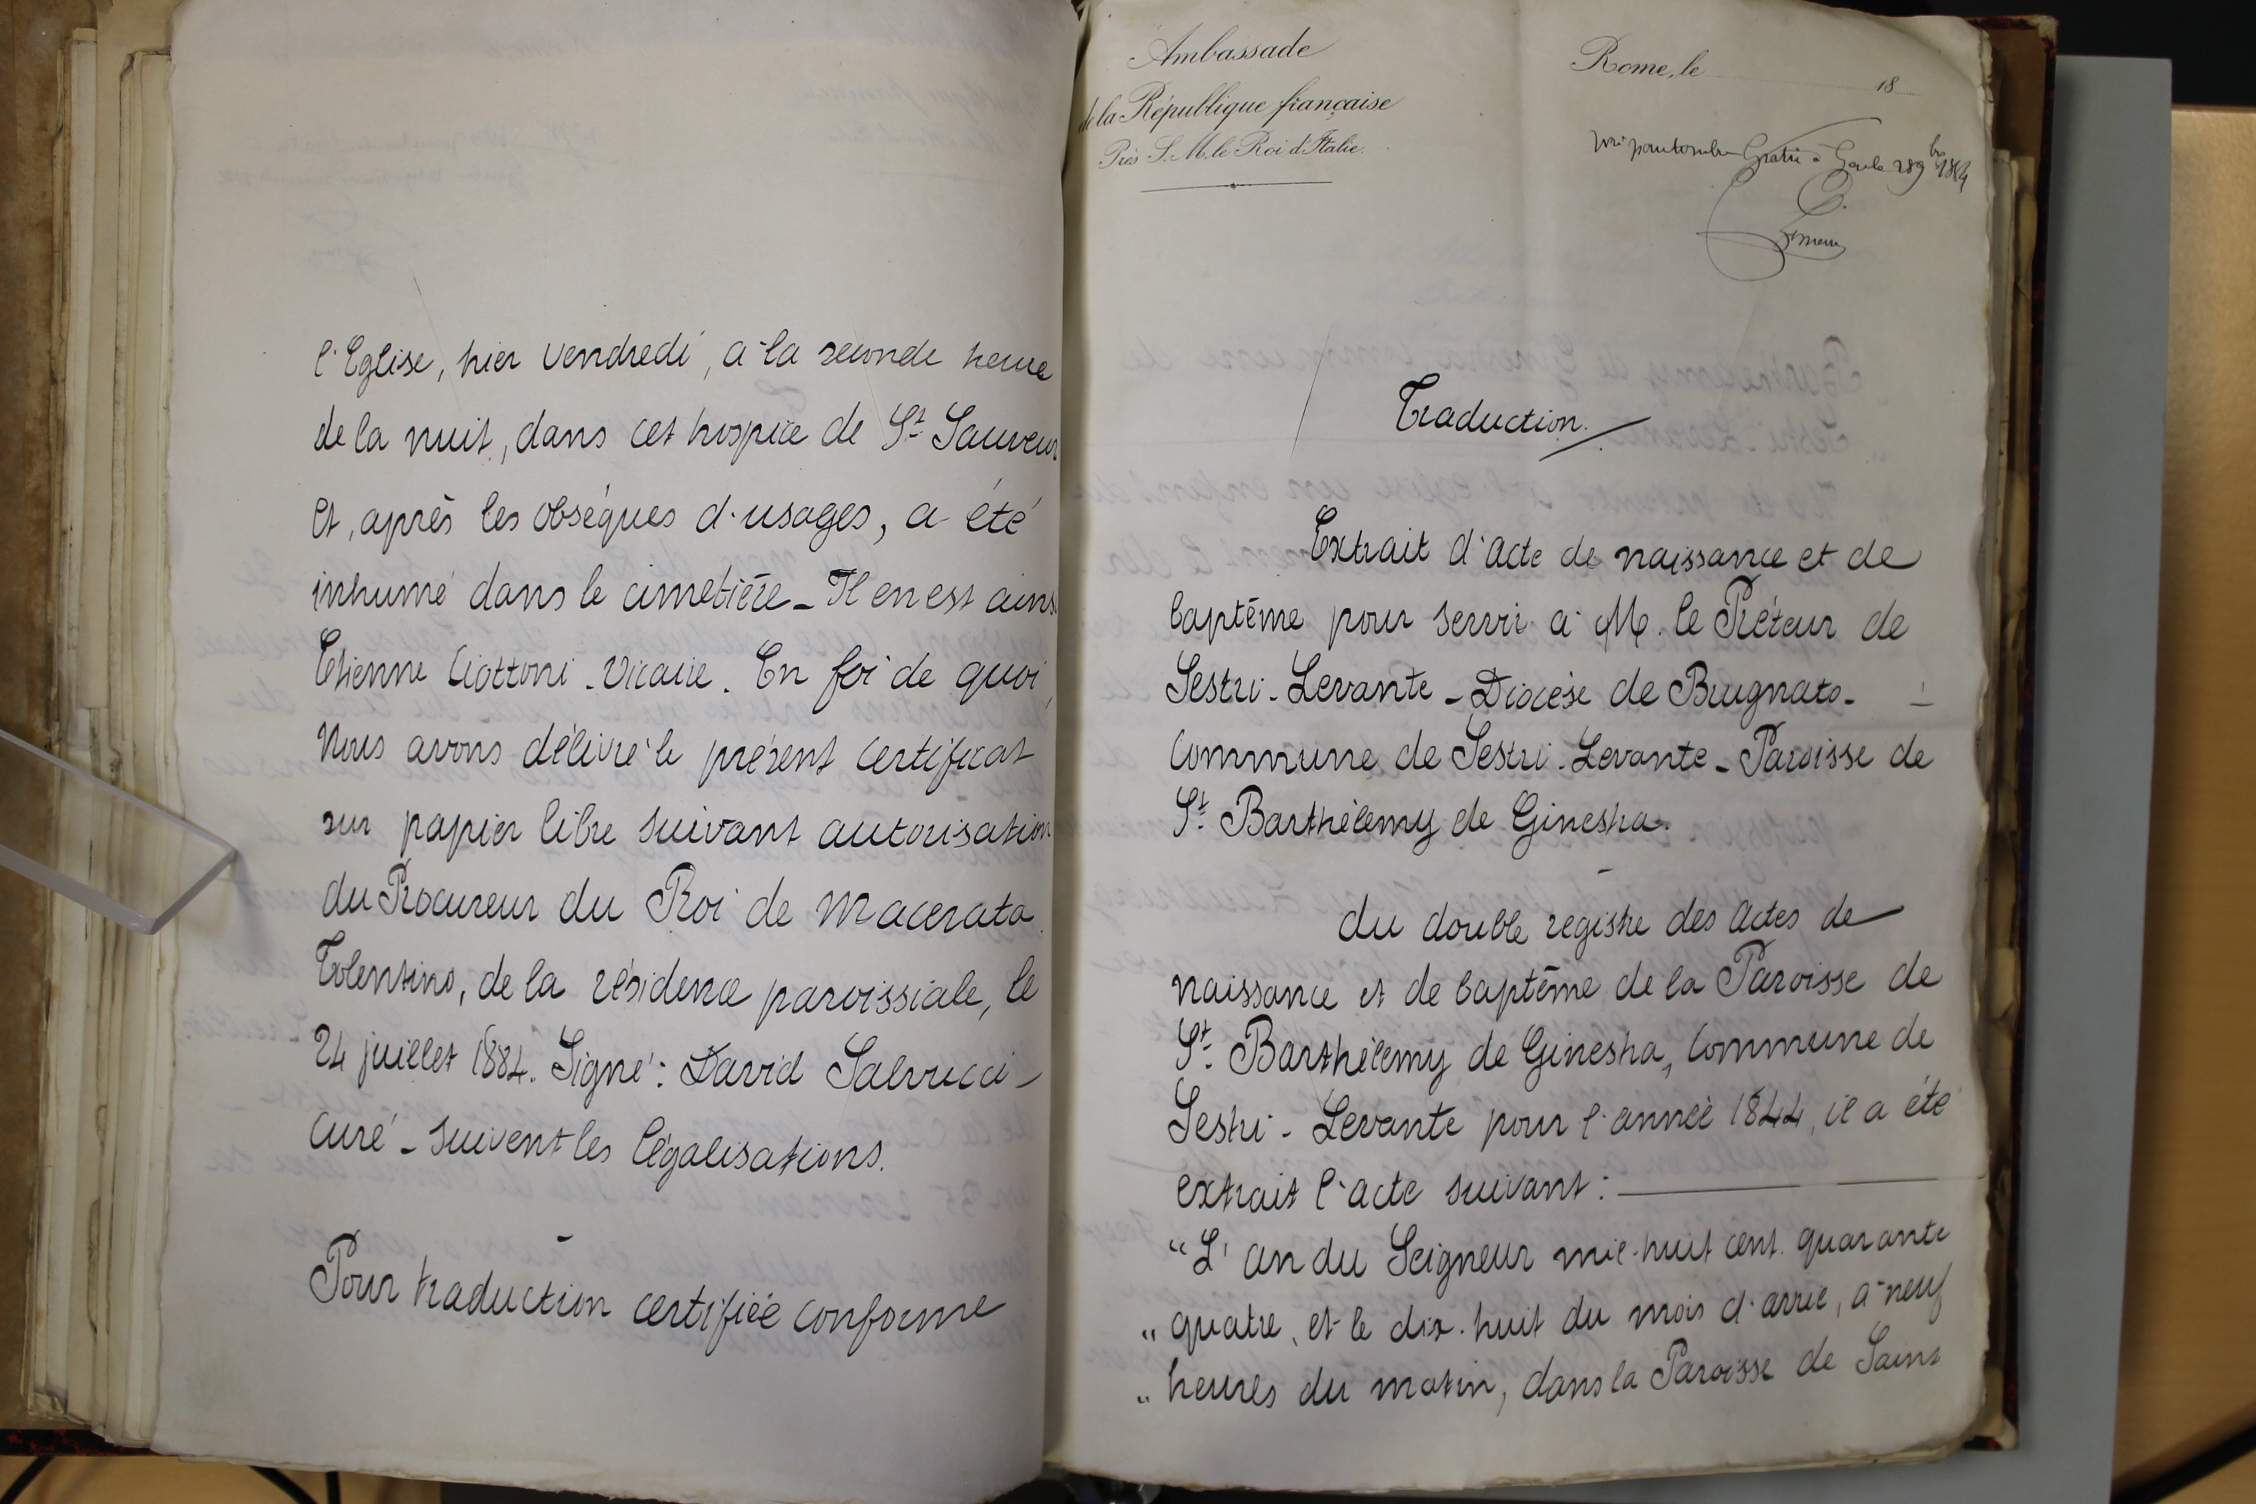 l'Eglise, hier vendredi, à la seconde heure
de la nuit, dans cet hospice de St. Sauveur
et, après les obsèques d'usages, a été
inhumé dans le cimetière - Il en est ainsi
Etienne Ciottoni - Vicaire. En foi de quoi,
Nous avons délivré le présent certificat
sur papier libre suivant autorisation
du Procureur du Roi de Macerata.
Tolentino, de la résidence paroissiale, le
24 juillet 1884. Signé: David Salvucci -
Curé - suivent les légalisations.
Pour traduction certifiée conforme
Ambassade
de la République française
Près S. M. le Roi d'Italie.
Rome, le 18
Traduction.
Extrait d'acte de naissance et de
baptême pour servir à M. le Préteur de
Sestri-Levante - Diocèse de Brugnato -
Commune de Sestri-Levante - Paroisse de
St. Barthélemy de Ginestra.
du double registre des actes de
naissance et de baptême de la Paroisse de
St. Barthélemy de Ginestra, Commune de
Sestri-Levante pour l'année 1844, il a été
extrait l'acte suivant :
"L'an du Seigneur mil-huit cent quarante
" quatre, et le dix-huit du mois d'avril, à neuf
" heures du matin, dans la Paroisse de Saint